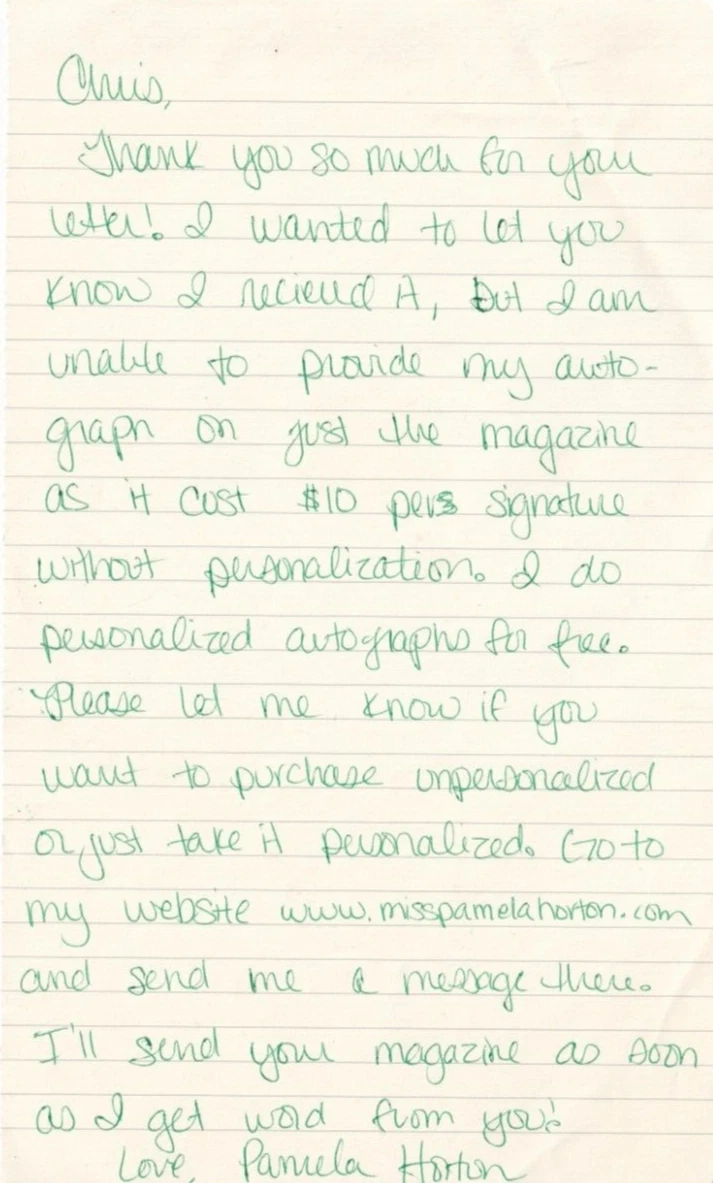 Chris,
Thank you so much for your
letter! I wanted to let you
know I recieved it, but I am
unable to provide my auto-
graph on just the magazine
as it cost $10 per signature
without personalization. I do
personalized autographs for free.
Please let me know if you
want to purchase unpersonalized
or just take it personalized. Go to
my website www.misspamelahorton.com
and send me a message there.
I'll send your magazine as soon
as I get word from you!
Love, Pamela Horton